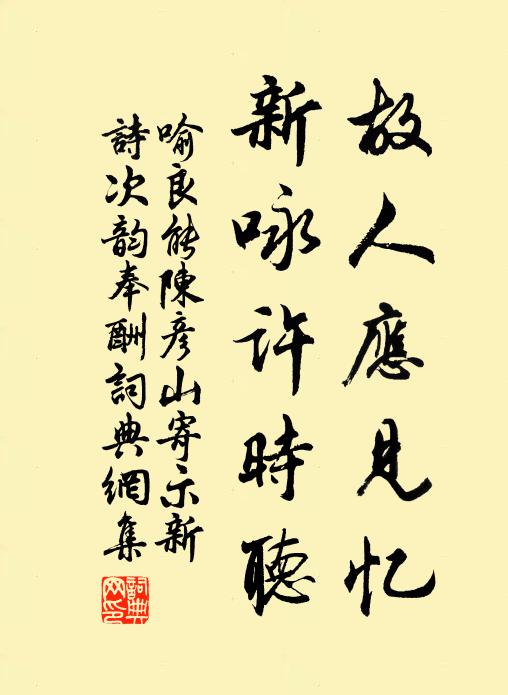 故人應見忆
新咏許時聽
喻良能陳彦山寄示新
詩次韵奉酬詞典網集